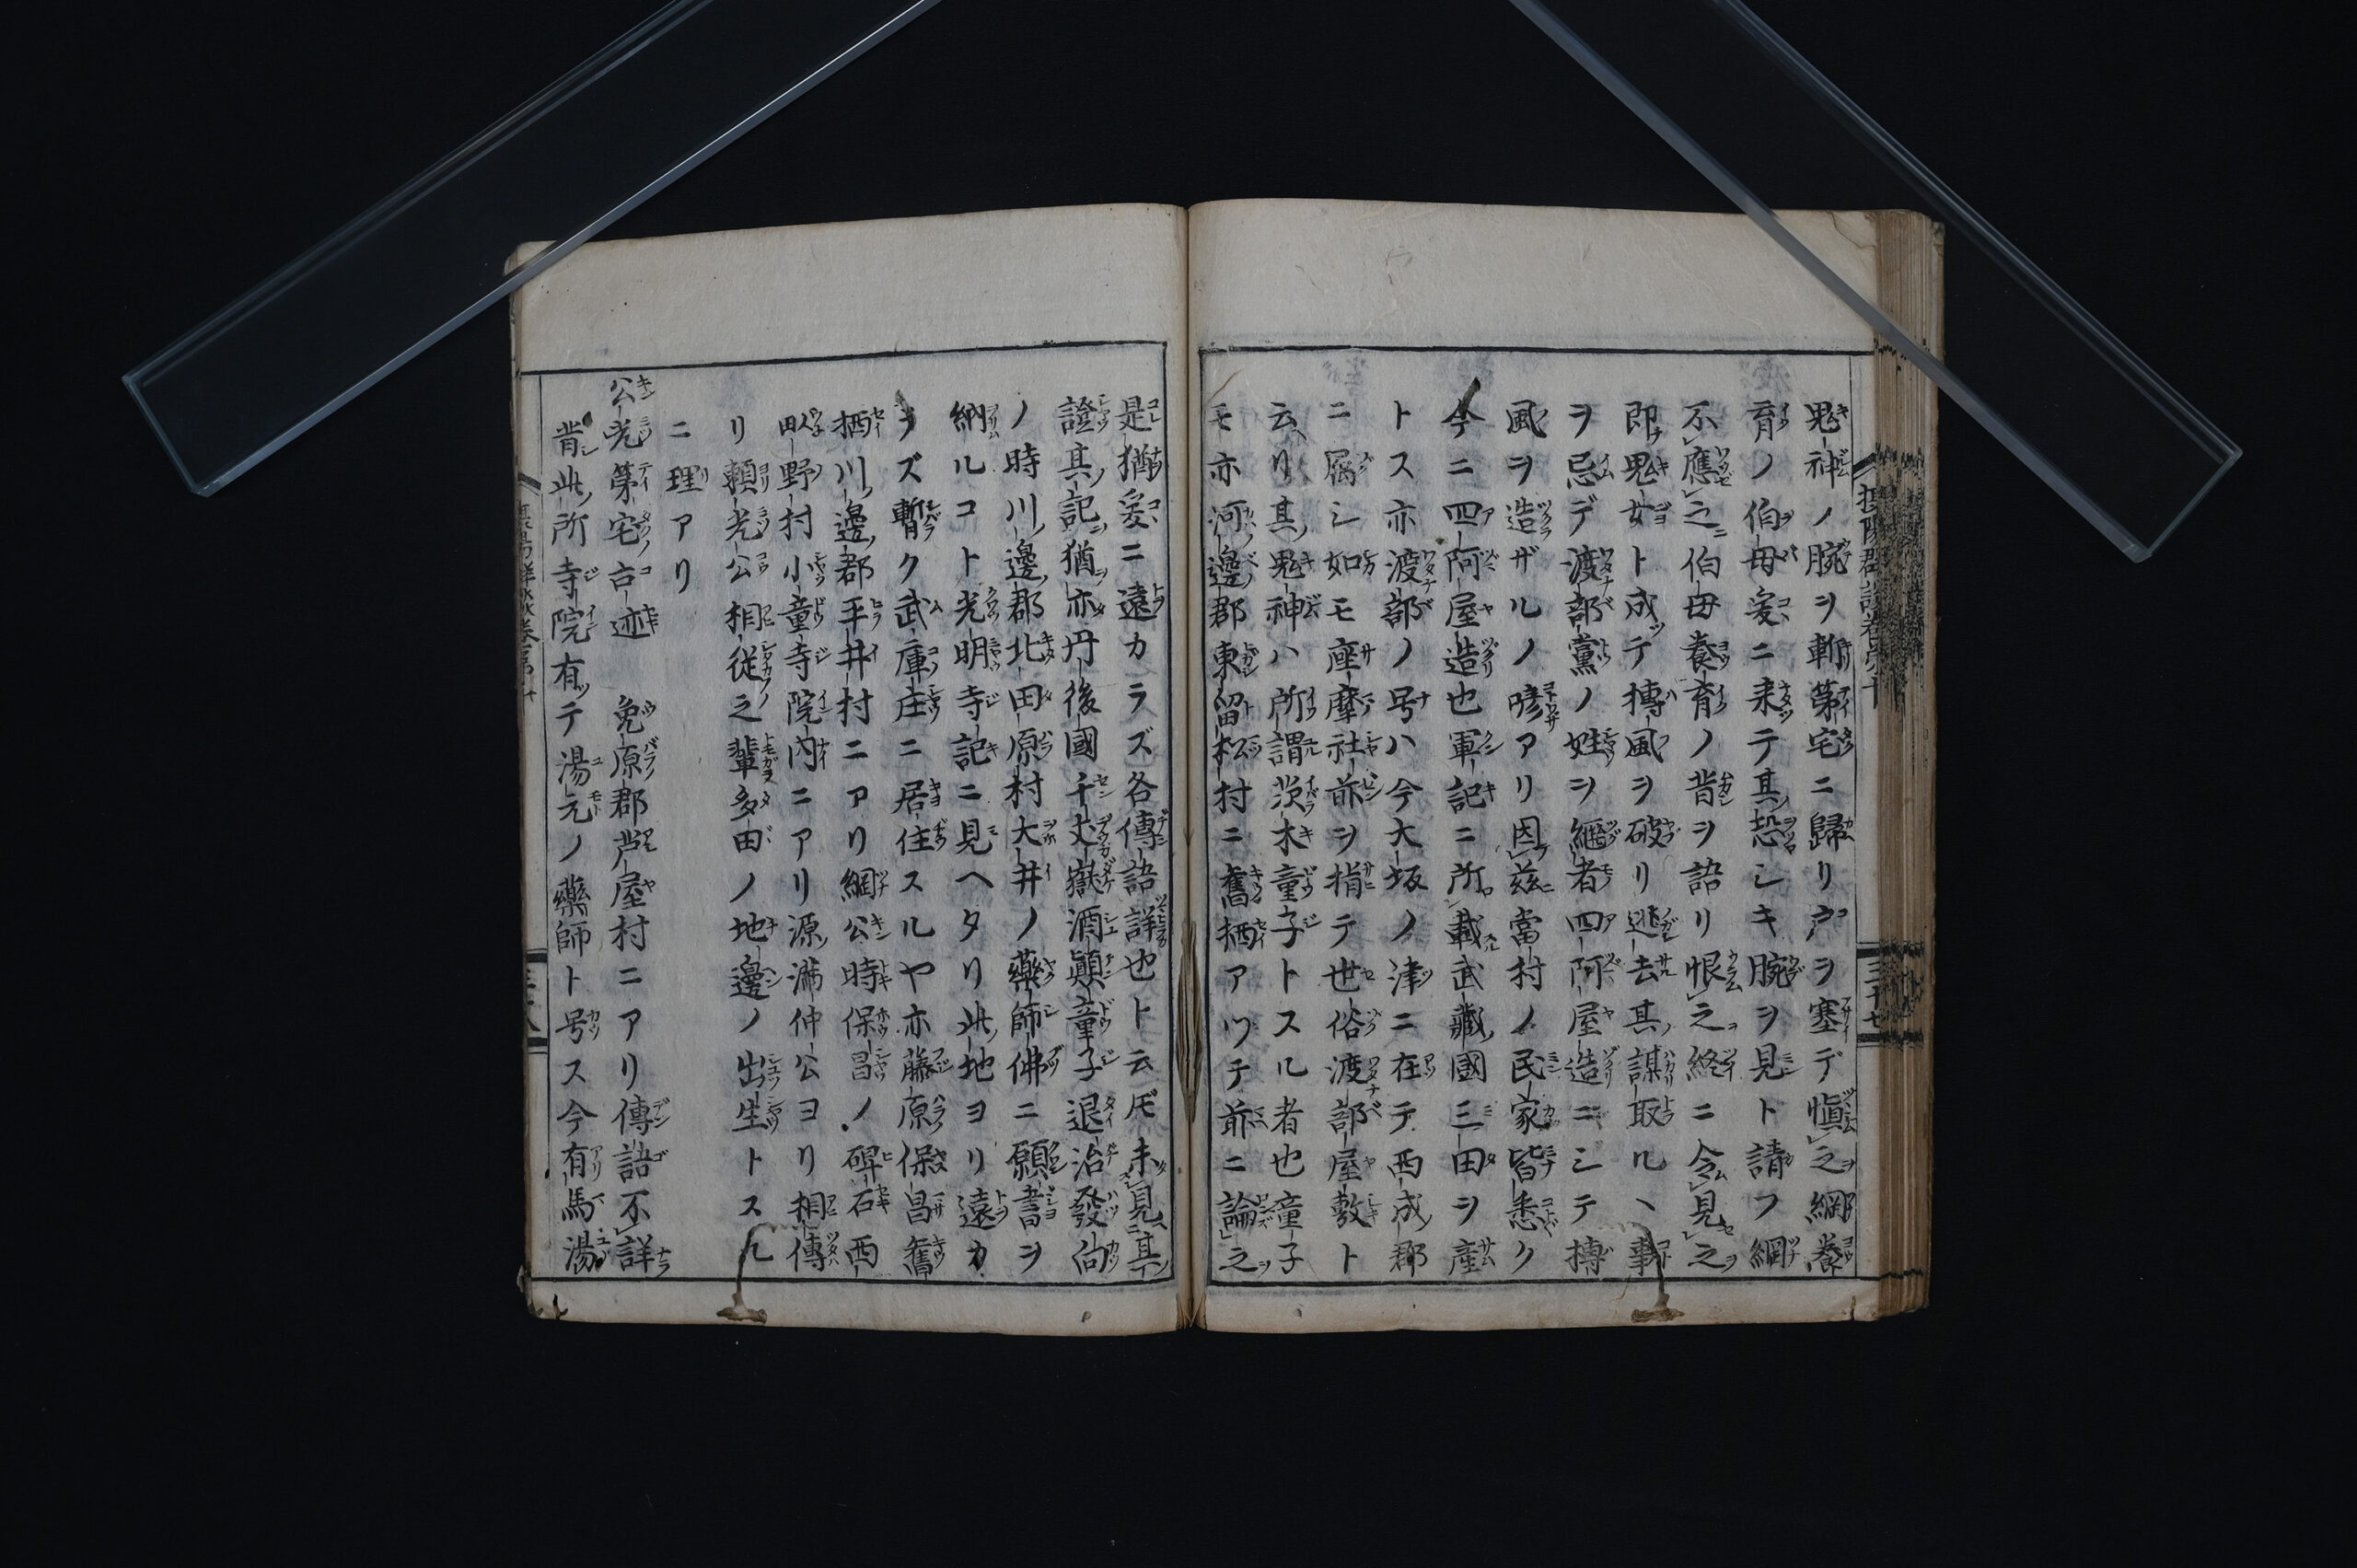 鬼神ノ腕ヲ斬第宅ニ歸リ戸ヲ塞デ愼之綱養
育ノ伯母爰ニ来テ其恐シキ腕ヲ見ト請フ綱
不應之伯母養育ノ昔ヲ語リ恨之終ニ令見之
即鬼女ト成テ摶風ヲ破リ逃去其謀取ルヽ事
ヲ忌デ渡部黨ノ姓ヲ繼者四阿屋造ニシテ摶
風ヲ造ザルノ諺アリ因茲當村ノ民家皆悉ク
今ニ四阿屋造也軍記ニ所載武藏國三田ヲ産
トス亦渡部ノ号ハ今大坂ノ津ニ在テ西成郡
ニ屬シ如モ座摩社前ヲ指テ世俗渡部屋敷ト
云リ其鬼神ハ所謂茨木童子トスル者也童子
モ亦河邊郡東留松村ニ舊栖アツテ前ニ論之
是猶爰ニ遠カラズ各傳語詳也ト云𪜈未見其
證其記猶亦丹後國千丈嶽酒顚童子退治發向
ノ時川邊郡北田原村大井ノ藥師佛ニ願書ヲ
納ルコト光明寺記ニ見ヘタリ此地ヨリ遠カ
ラズ暫ク武庫庄ニ居住スルや亦藤原保昌舊
栖川邊郡平井村ニアリ綱公時保昌ノ碑石西
畎野村小童寺院内ニアリ源満仲公ヨリ相傳
リ頼光公相従之輩多田ノ地邊ノ出生トスル
ニ理アリ
公光第宅古迹 兔原郡芦屋村ニアリ傳語不詳
昔此所寺院有テ湯元ノ藥師ト号ス今有馬湯
摂陽群談卷第十
三十七